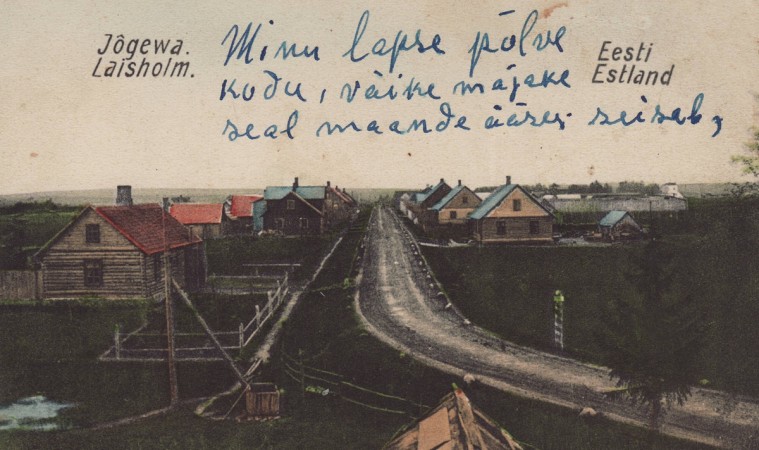 Jôgewa.
Laisholm.
Minu lapse põlve
kodu, väike majake
seal maande ääres seisab,
Eesti
Estland